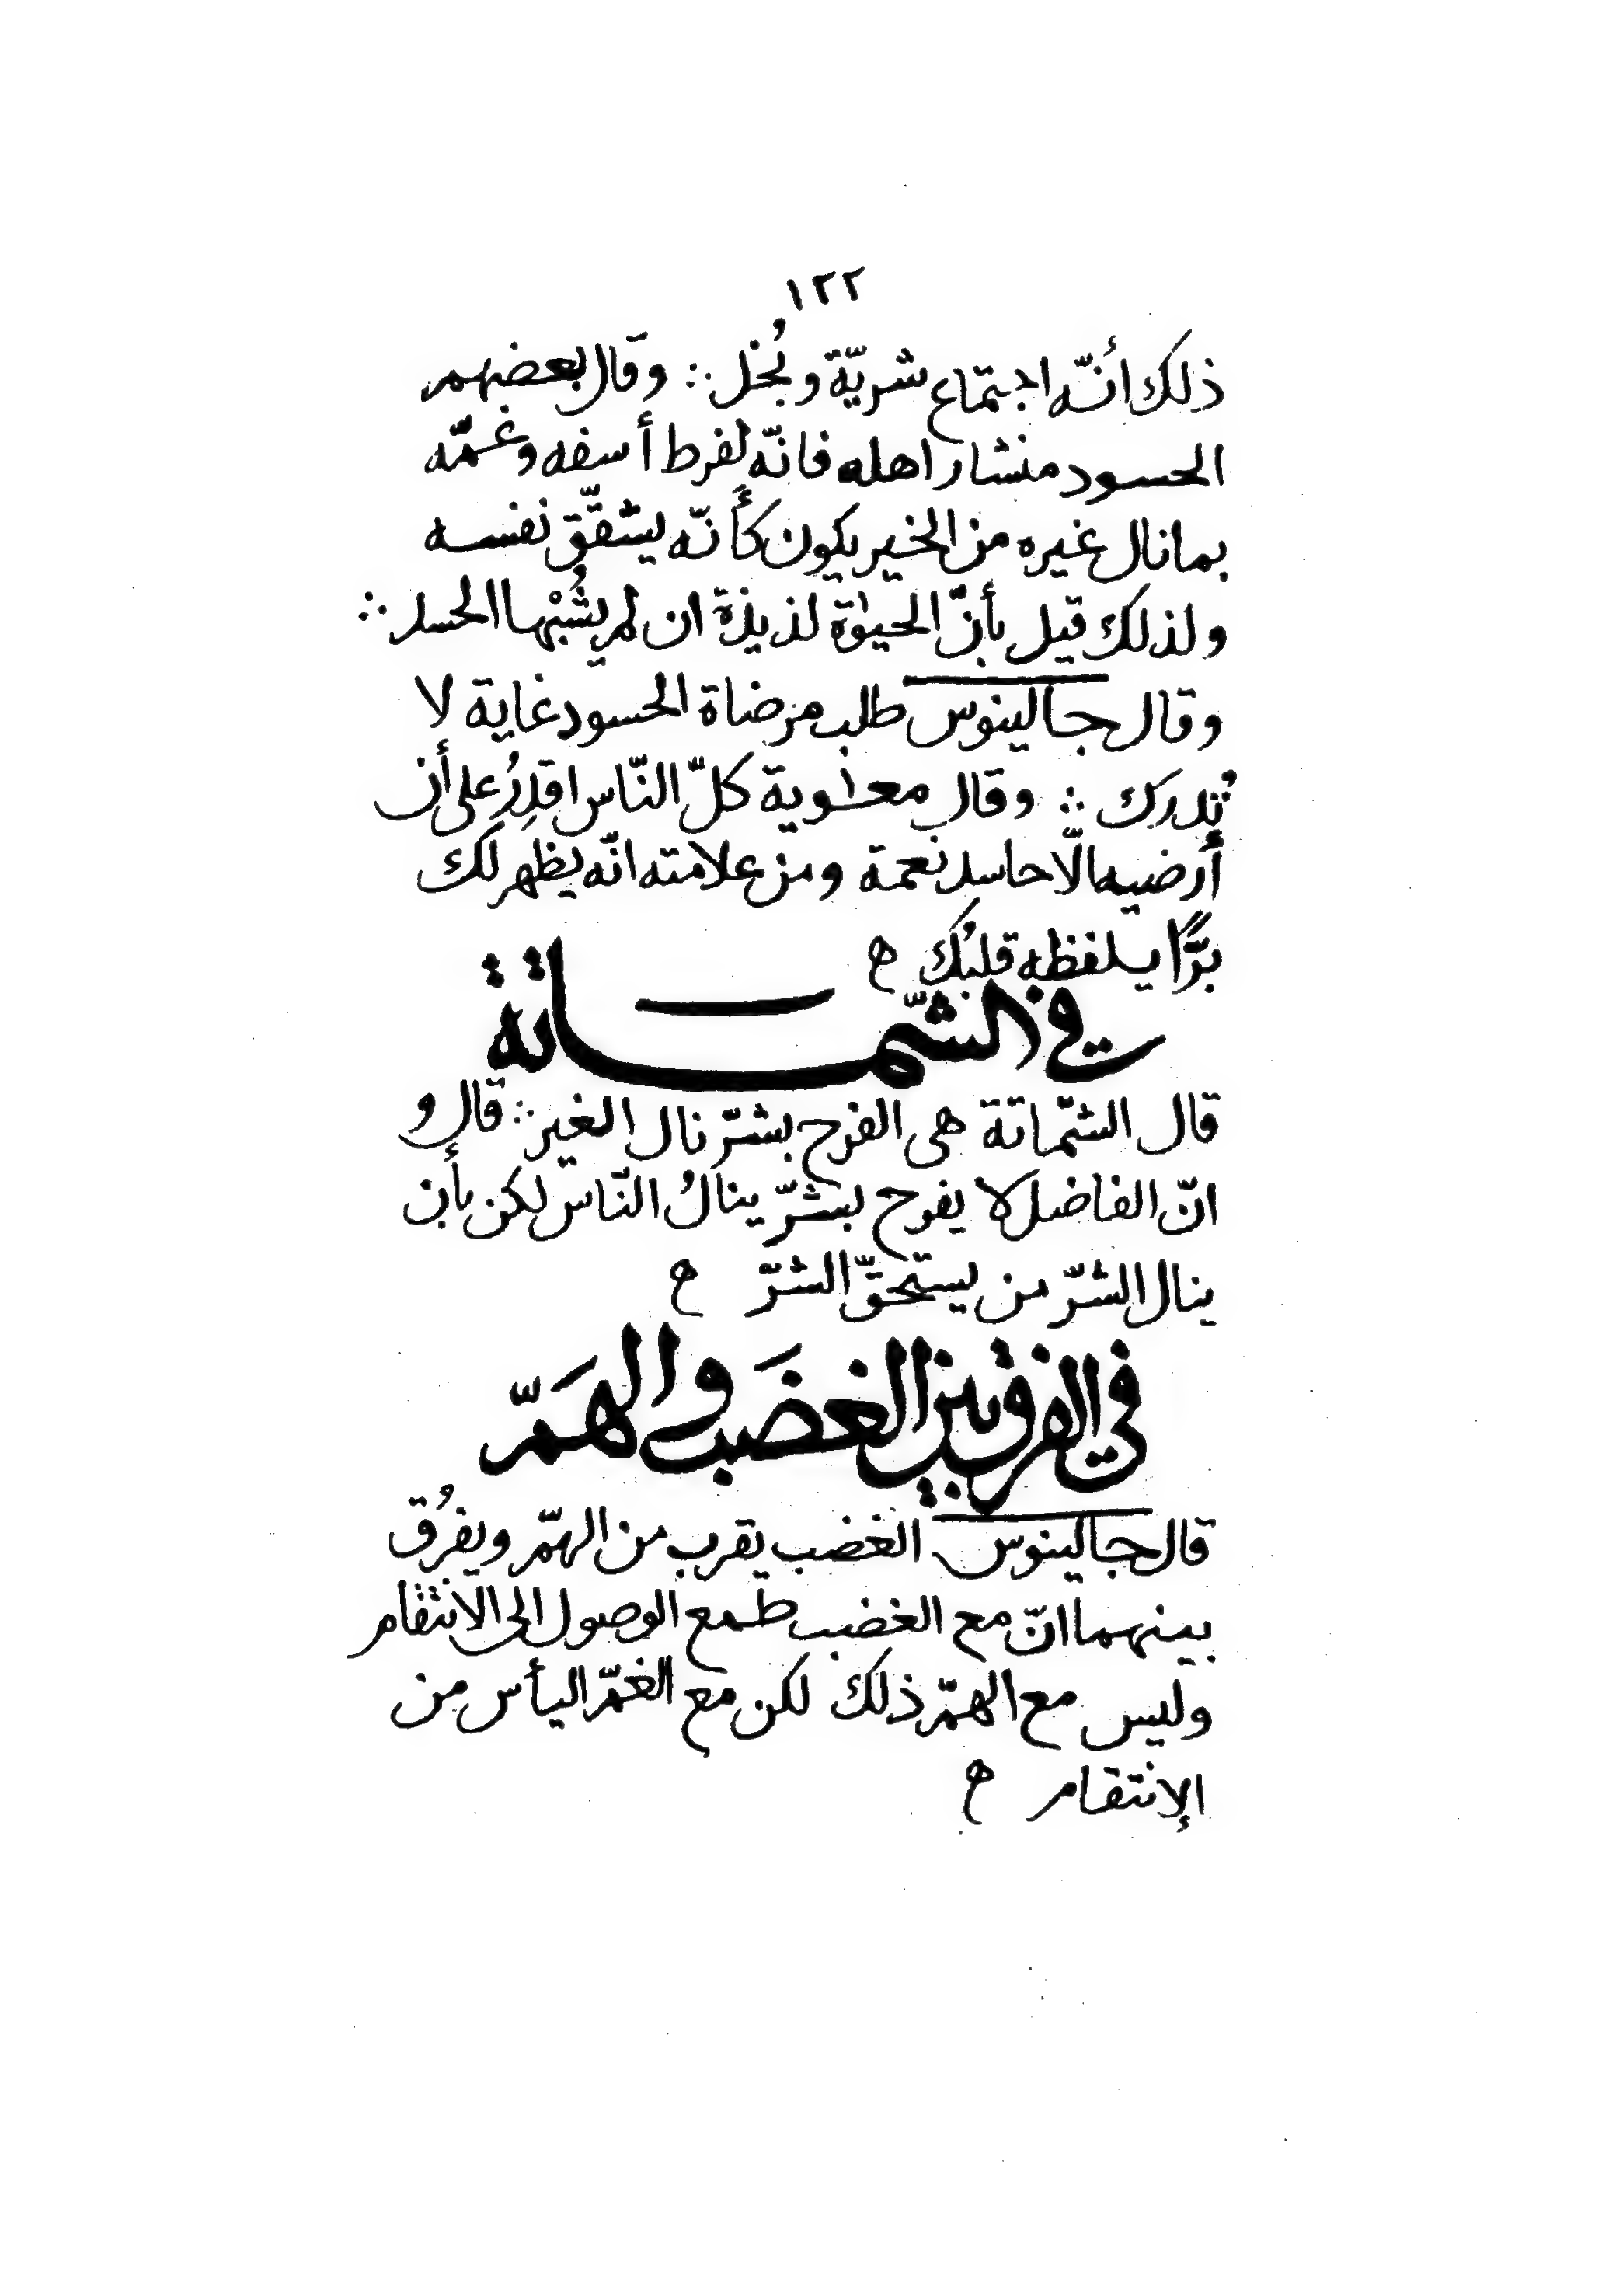 ١٢٢
ذلك أنّه اجتماع شريّة وبُخل ∴ وقال بعضهم
الحسود منشار اهله فانّه لفرط أسفه وغمّه
بما نال غيره من الخير يكون كأنّه يشقّق نفسه
ولذلك قيل بأنّ الحيوٰة لذيذة ان لم يشُبْها الحسد ∴
وقال جالينوس طلب مرضاة الحسود غاية لا
تُدرك ∴ وقال معٰوية كلّ النّاس اقدِرُ على أن
أرضيه الّا حاسد نعمة ومن علامته انّه يظهر لك
برًّا يلفظه قلبُك ه
في الشّمَاتة
قال الشّماتة هى الفرح بشرّ نال الغير ∴ قال و
انّ الفاضل لا يفرح بشرّ ينالُ النّاس لكن بأن
ينال الشرّ من يستحقّ الشرّ ه
في الفرق بين الغضَب والهَمّ
قال جالينوس الغضب يقرب من الهمّ ويفرُق
بينهما انّ مع الغضب طمع الوصول الى الانتقام
وليس مع الهمّ ذلك لكن مع الغمّ اليأس من
الإنتقام ه